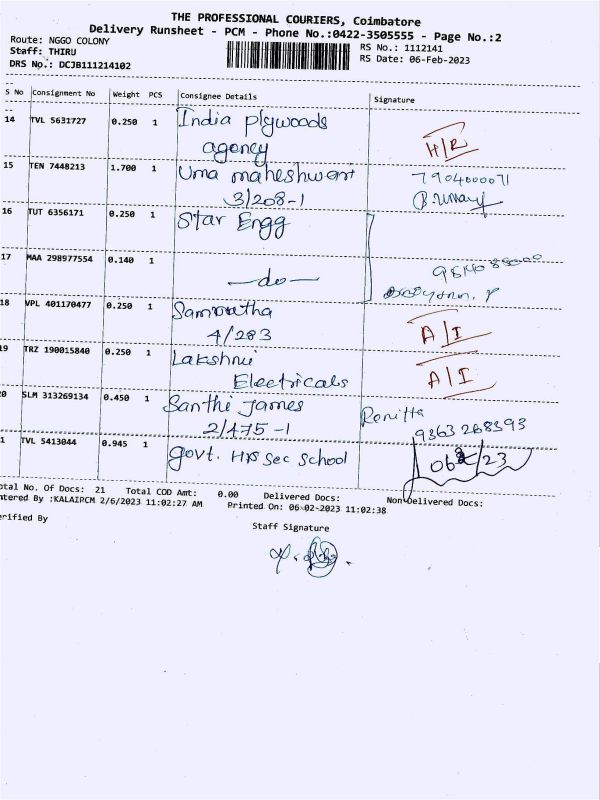 THE PROFESSIONAL COURIERS, Coimbatore
Delivery Runsheet - PCM - Phone No.:0422-3505555 - Page No.:2
Route: NGGO COLONY
RS No.: 1112141
Staff: THIRU
RS Date: 06-Feb-2023
DRS No.: DCJB111214102
S No Consignment No Weight PCS Consignee Details Signature
14 TVL 5631727 0.250 1 India plywoods
agency H/R
15 TEN 7448213 1.700 1 Uma maheshwari 7904000071
3/208-1
16 TUT 6356171 0.250 1 Star Engg
17 MAA 298977554 0.140 1
-do-
18 VPL 401170477 0.250 1 Samrutha A/I
4/283
19 TRZ 190015840 0.250 1 Lakshmi A/I
Electricals
20 SLM 313269134 0.450 1 Santhi James Renitta
2/475-1 9363268393
1 TVL 5413044 0.945 1 Govt. Hr Sec School 06/2/23
otal No. Of Docs: 21 Total COD Amt: 0.00 Delivered Docs: Non-Delivered Docs:
ntered By :KALAIPCM 2/6/2023 11:02:27 AM Printed On: 06-02-2023 11:02:38
erified By
Staff Signature